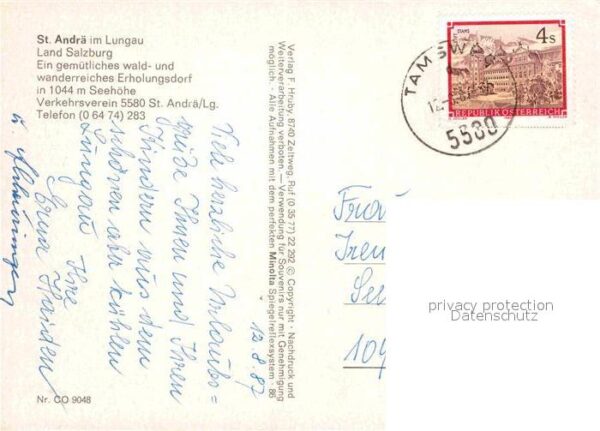 St. Andrä im Lungau
Land Salzburg
Ein gemütliches wald- und
wanderreiches Erholungsdorf
in 1044 m Seehöhe
Verkehrsverein 5580 St. Andrä/Lg.
Telefon (0 64 74) 283
Verlag F. Hruby, 8740 Zeltweg, Ruf (0 35 77) 22 292 © Copyright · Nachdruck und
Weiterverarbeitung verboten. — Verwendung für Souvenirs nur mit Genehmigung
möglich. · Alle Aufnahmen mit dem perfekten Minolta Spiegelreflexsystem · 86
12.8.87
Viele herzliche Urlaubs=
grüße Ihnen und Ihren
Kindern aus dem
schönen aber kühlen
Lungau Ihre
Erna
Nr. CO 9048
STAMS
4 S
REPUBLIK ÖSTERREICH
TAMSW
5580
Frau
Iren
See
109
privacy protection
Datenschutz